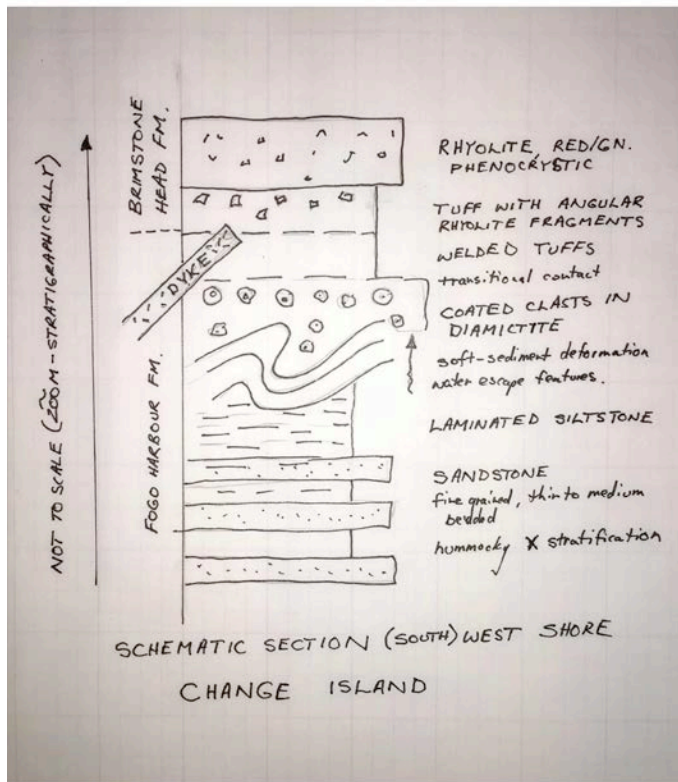 BRIMSTONE
HEAD FM.
NOT TO SCALE (~200M-STRATIGRAPHICALLY)
FOGO HARBOUR FM.
DYKE
RHYOLITE, RED/GN.
PHENOCRYSTIC
TUFF WITH ANGULAR
RHYOLITE FRAGMENTS
WELDED TUFFS
transitional contact
COATED CLASTS IN
DIAMICTITE
soft-sediment deformation
water escape features.
LAMINATED SILTSTONE
SANDSTONE
fine grained, thin to medium
bedded
hummocky X stratification
SCHEMATIC SECTION (SOUTH) WEST SHORE
CHANGE ISLAND